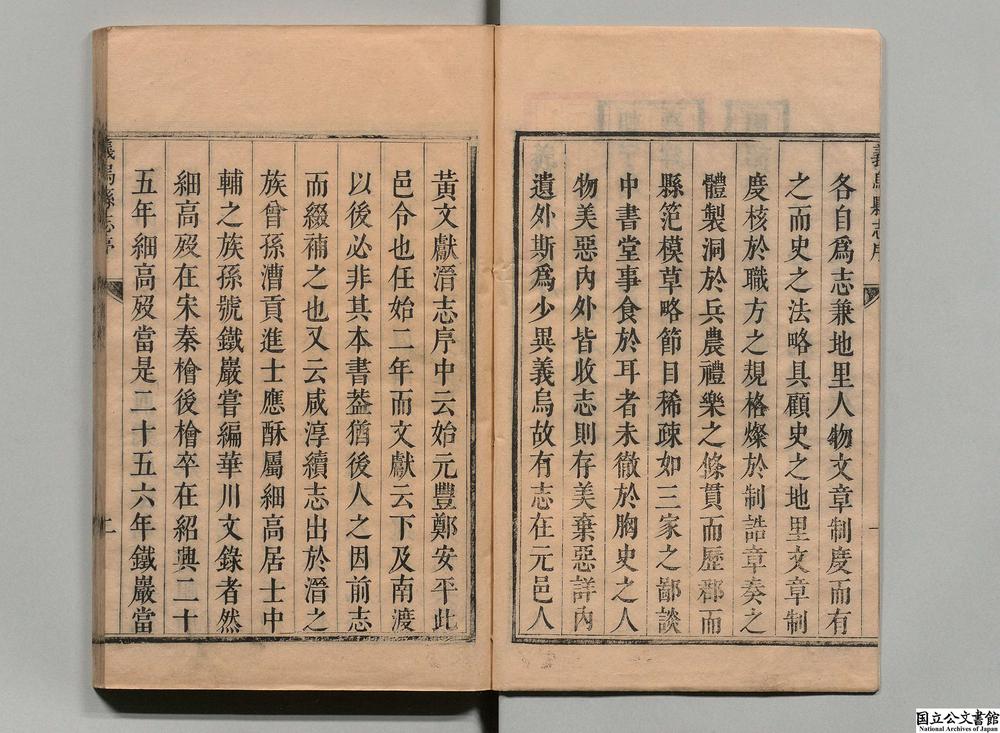 義烏縣志序
各自爲志兼地里人物文章制度而有
之而史之法略具顧史之地里文章制
度核於職方之規格燦於制誥章奏之
體製洞於兵農禮樂之條貫而歷郡而
縣范模草略節目稀疎如三家之鄙談
中書堂事食於耳者未徹於胸史之人
物美惡內外皆收志則存美棄惡詳內
遺外斯爲少異義烏故有志在元邑人
黃文獻溍志序中云始元豐鄭安平此
邑令也任始二年而文獻云下及南渡
以後必非其本書葢猶後人之因前志
而綴補之也又云咸淳續志出於溍之
族曾孫漕貢進士應酥屬細高居士中
輔之族孫號鐵巖嘗編華川文錄者然
細高歿在宋秦檜後檜卒在紹興二十
五年細高歿當是二十五六年鐵巖當
義烏縣志序
二
国立公文書館
National Archives of Japan